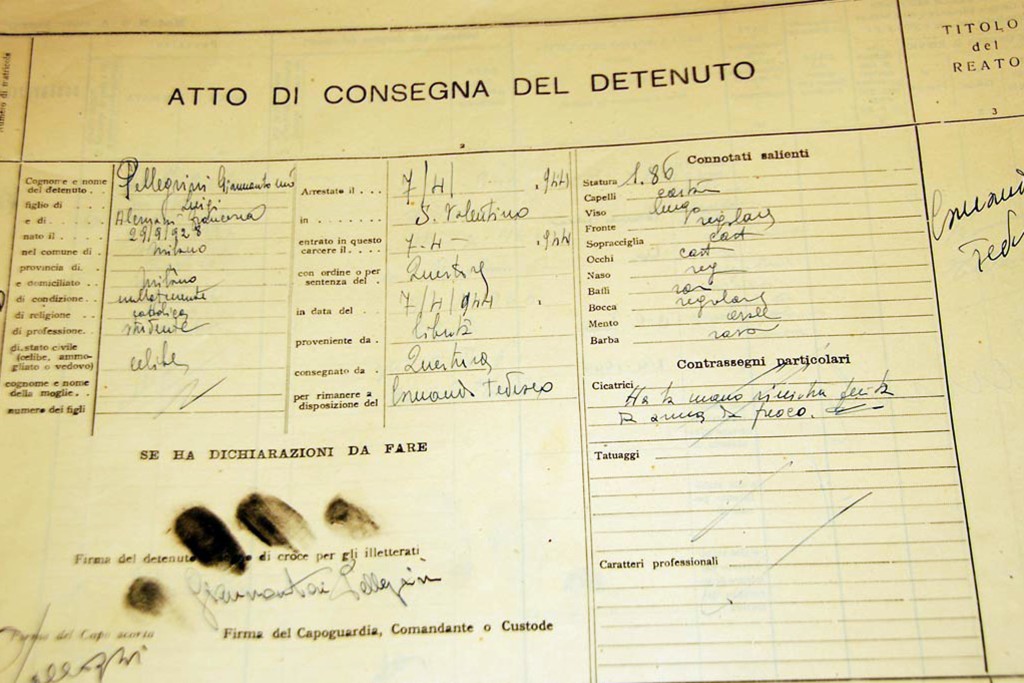 TITOLO
del
REATO
3
ATTO DI CONSEGNA DEL DETENUTO
2
Cognome e nome
del detenuto . . Pellegrini
figlio di . . . Luigi
e di . . . . Francesca
nato il . . . 29/9/928
nel comune di . Milano
provincia di.
e domiciliato . Milano
di condizione. . .
di religione . . cattolica
di professione. studente
di stato civile
(celibe, ammo-
gliato o vedovo) celibe
cognome e nome
della moglie. .
numero dei figli
Arrestato il . . . 7/4/ , 944
in . . . . . S. Valentino
entrato in questo
carcere il. . . . 7-4- , 944
con ordine o per
sentenza del . Questura
in data del . . 7/4/944
proveniente da . libertà
consegnato da . Questura
per rimanere a
disposizione del Comando Tedesco
Connotati salienti
Statura 1.86
Capelli cast
Viso lungo
Fronte regolare
Sopracciglia cast
Occhi cast
Naso reg
Baffi
Bocca regolare
Mento
Barba
Contrassegni particolari
Cicatrici Ha la mano sinistra ferita
da arma da fuoco.
Tatuaggi
Caratteri professionali
Comando
SE HA DICHIARAZIONI DA FARE
Firma del detenuto di croce per gli illetterati
Pellegrini
Firma del Capo scorta
Firma del Capoguardia, Comandante o Custode